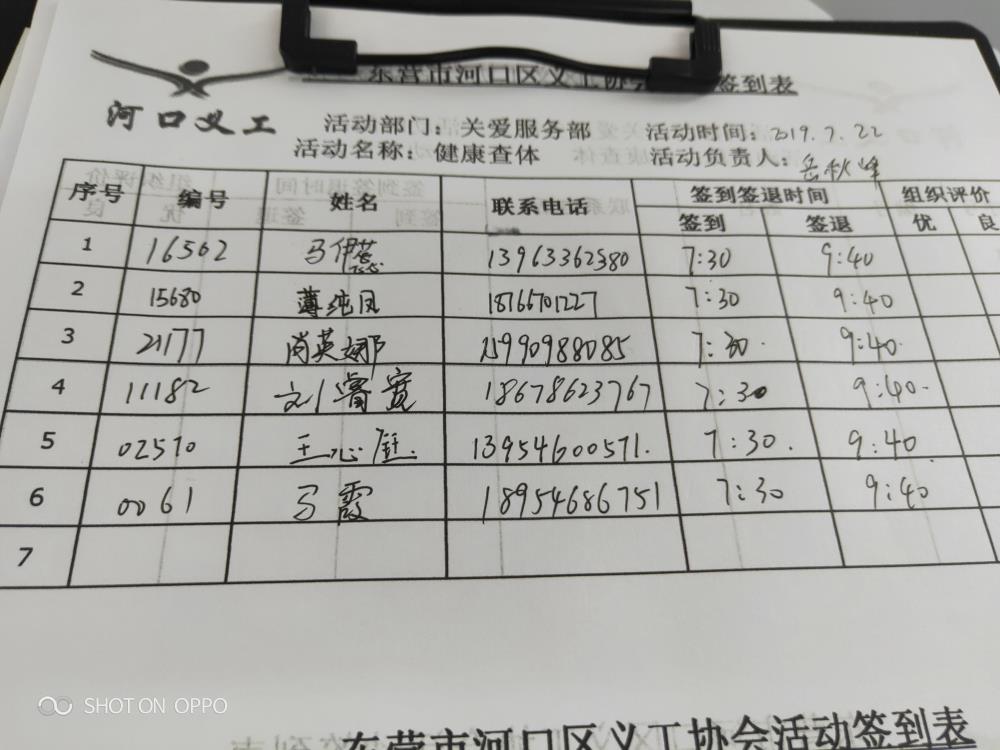 东营市河口区义工协会 签到表
河口义工
活动部门：关爱服务部 活动时间：2019.7.22
活动名称：健康查体 活动负责人：岳秋峰
序号 编号 姓名 联系电话 签到签退时间 组织评价
签到 签退 优 良
1 16502 马伊蕊 13963362580 7:30 9:40
2 15680 薄纯凤 18766701227 7:30 9:40
3 21177 尚英娜 15990988085 7:30 9:40
4 11182 刘睿宽 18678623767 7:30 9:40
5 02570 王心 13954600571 7:30 9:40
6 0061 马霞 18954686751 7:30 9:40
7
SHOT ON OPPO
东营市河口区义工协会活动签到表